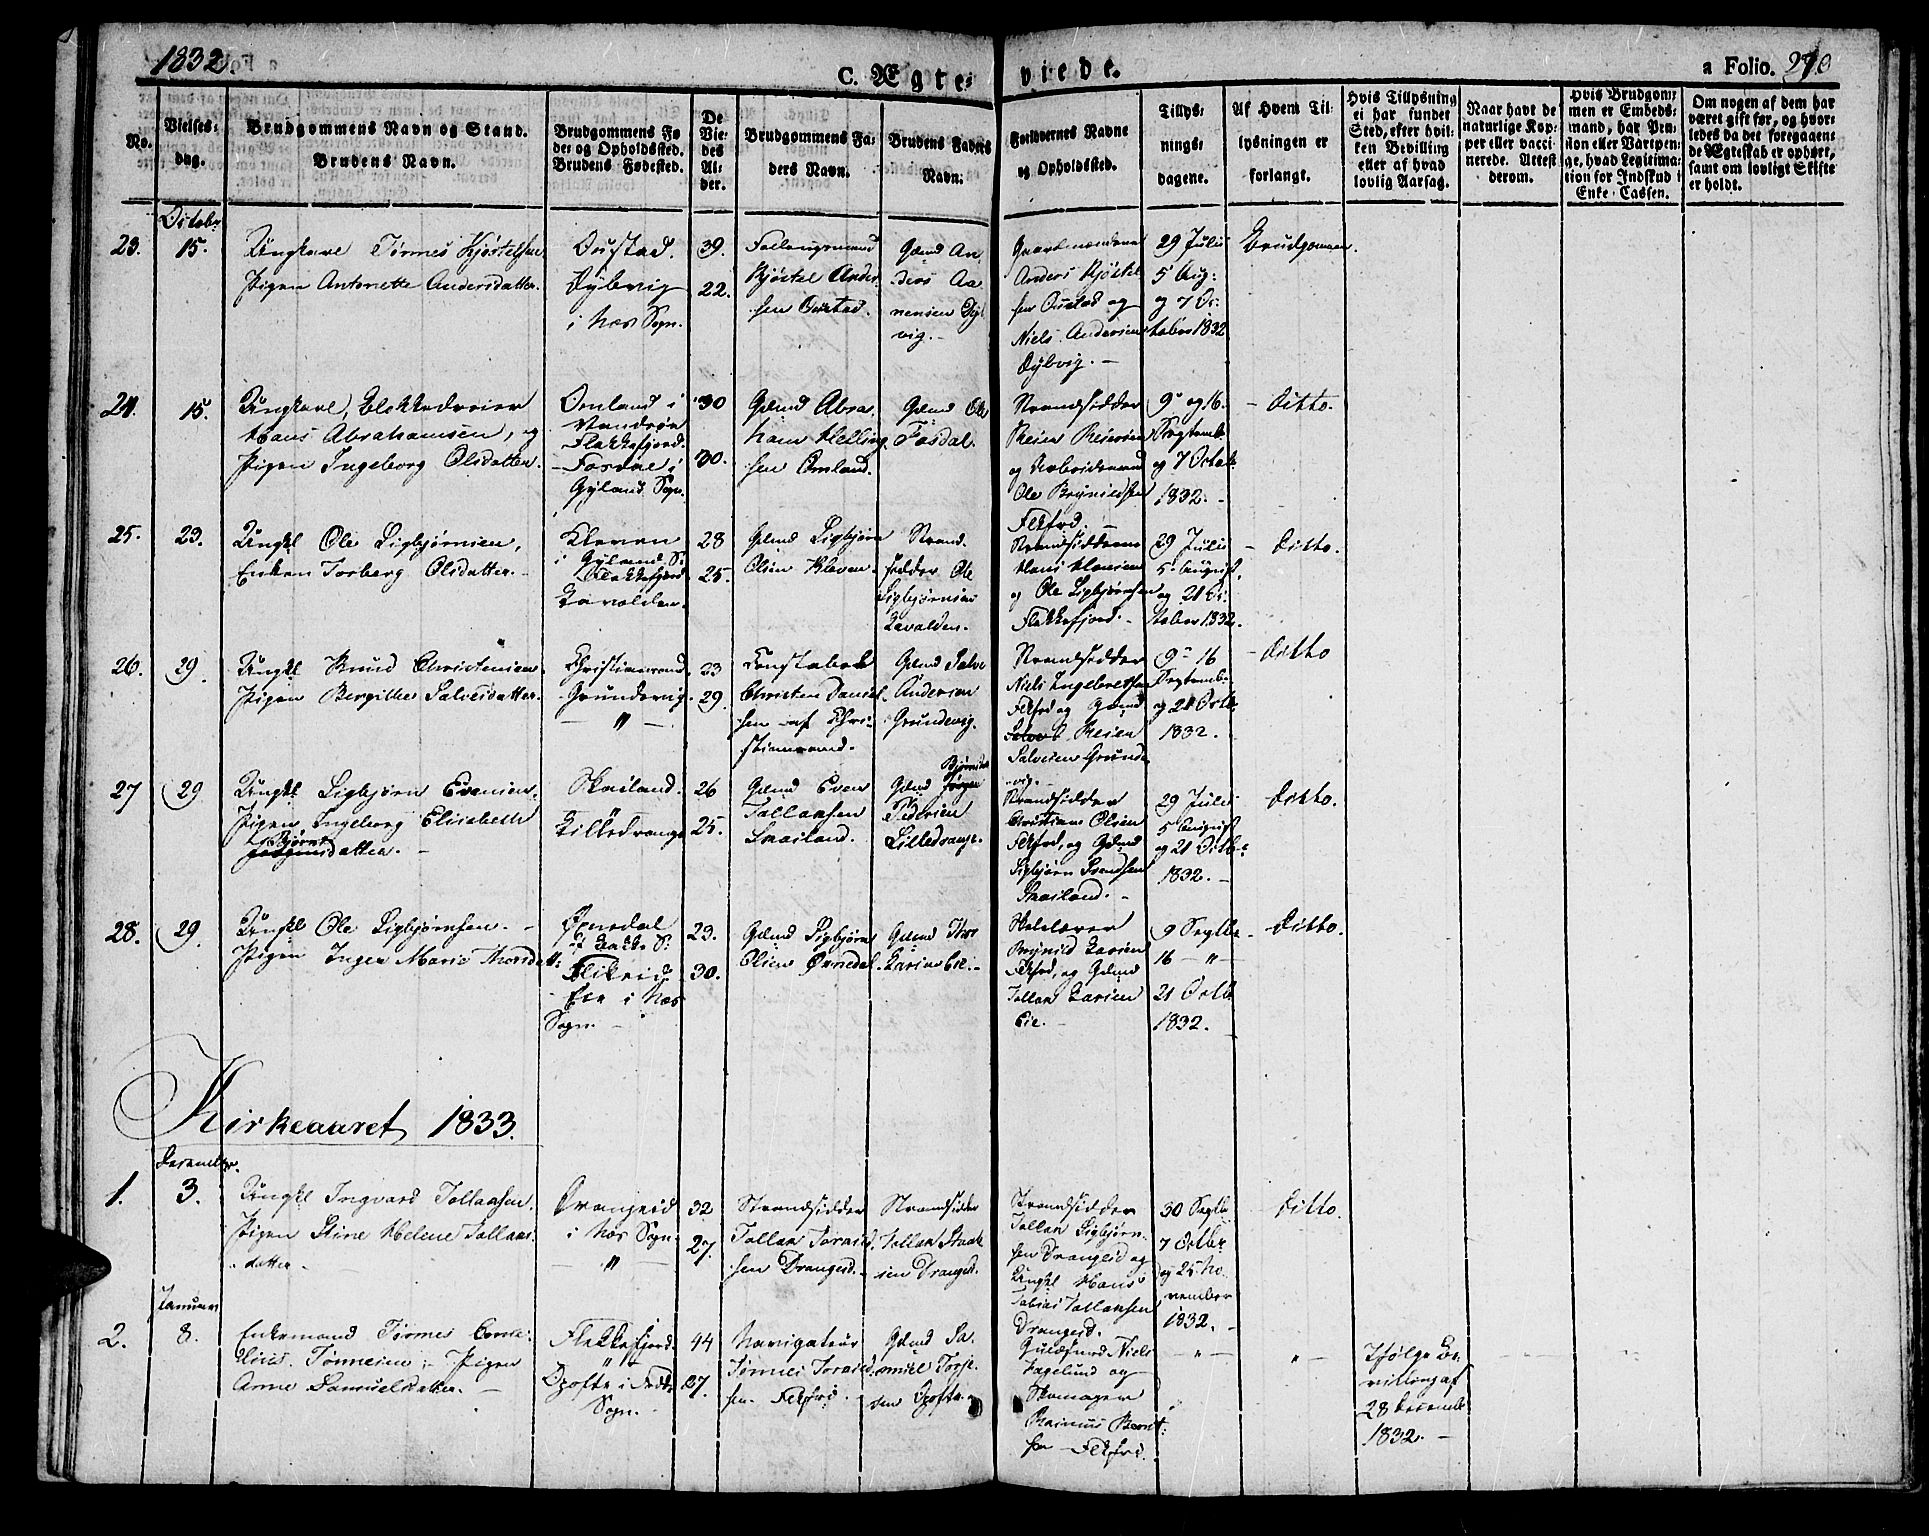 1832.
C. Ægteviede.
a Folio. 270
No.
Vielses-
dag.
Brudgommens Navn og Stand.
Brudens Navn.
Brudgommens Fø
de: og Opholdssted.
Brudens Fødested.
De
Vie-
des
Al-
der.
Brudgommens Fa-
ders Navn.
Brudens Faders
Navn.
Forlovernes Navne
og Opholdssted.
Tillys-
nings-
dagene.
Af Hvem Til-
lysningen er
forlangt.
Hvis Tillysning
ei har fundet
Sted, efter hvil-
ken Bevilling
eller af hvad
lovlig Aarsag.
Naar havt de
naturlige Kop-
per eller vacci-
nerede. Attest
derom.
Hvis Brudgom-
men er Embeds-
mand, har Pen-
sion eller Vartpen-
ge, hvad Legitima-
tion for Indskud i
Enke-Cassen.
Om nogen af dem har
været gift før, og hvor-
ledes da det foregaaen-
de Ægteskab er ophørt,
samt om lovligt Skifte
er holdt.
Octobr
23.
15.
Ungkarl Tørnes Kjøstelsen
Pigen Antonette Andersdatter.
Oustad.
Dybvig
i Næs Sogn.
39.
22.
Kjøstel Ander
sen Oustad.
Gdmd An
ders Aa
nensen Dyb
vig.
Gaardmændene
Anders Kjøstel
sen Oustad og
Niels Andersen
Dybvig.
29 Julii
5 Aug:
og 7 Oc
tober 1832
Brudgommen.
24.
15.
Ungkarl, Blokkedreier
Hans Abrahamsen, og
Pigen Ingeborg Olsdatter.
Omland i
Flekkefjord.
Fosdal i
Gyland Sogn
30
30.
Gdmd Abra
ham Helling
sen Omland.
Gdmd Ole
Fosdal.
Strandsidder
Reier Reiersen
og Arbeidsmand
Ole Brynildsen
Flkfrd.
9de og 16.
Septemb.
og 7 Octob.
1832.
Ditto.
25.
23.
Ungkl Ole Sigbjørnsen,
Enken Torborg Olsdatter.
Kleven
i Gyland S:
Flekkefjord
Lavolden.
28
25.
Gdmd Sigbjørn
Olsen Kleven.
Strand
sidder Ole
Sigbjørnsen
Lavolden.
Strandsidderne
Hans Hansen
og Ole Sigbjørnsen
Flekkefjord.
29 Julii
5 August
og 21 Oc
tober 1832.
Ditto.
26.
29.
Ungkl Knud Christensen
Pigen Bergithe Salvesdatter.
Christiansand
Grundevig
— " —
23
29.
Constabel
Christen Daniel
sen af Chri
stiansand.
Gdmd Salve
Andersen
Grundevig.
Strandsidder
Niels Ingebretsen
Flkfrd og Gdmd
Reier
Salvesen Grunde
vig.
9de 16
Septemb.
og 21 Octb.
1832.
Ditto
27
29
Ungkl Sigbjørn Evensen.
Pigen Ingeborg Elisabeth
Bjørns
datter.
Skailand.
Lilledrange
26
25.
Gdmd Even
Tollaksen
Skailand.
Gdmd
Pedersen
Lilledrange.
Strandsidder
Christian Olsen
Flkfrd, og Gdmd
Sigbjørn Svendsen
Skailand.
29 Julii
5 August
og 21 Octbr
1832.
Ditto.
28.
29.
Ungkl Ole Sigbjørnsen.
Pigen Inger Marie Thorsdatt:
Ørnedal
i Bakke S:
Flikeid
Eie i Næs
Sogn.
23.
30.
Gdmd Sigbjørn
Olsen Ørnedal.
Gdmd Thor
Larsen Eie.
Brynild Larsen
Flkfrd, og Gdmd
Tollak Larsen
Eie.
9 Septbr
16 — " —
21 Octb
1832.
Ditto.
Kirkeaaret 1833.
December.
1.
3.
Ungkl Ingvard Tollaksen.
Pigen Stine Helene Tollaks
datter.
Drangeid
i Næs Sogn.
— " —
32
27.
Strandsidder
Tollak
sen Drangeid.
Strandsidder
Tollak
sen Drangeid.
Strandsidder
Tollak Sigbjørn
sen Drangeid og
Ungkl Hans
Tobias Tollaksen
Drangeid.
30 Septbr
7 Octbr
og 25 No
vember
1832.
Ditto.
Januar
2.
8.
Enkemand Tørnes Corne-
lius Tønnesen. Pigen
Anne Samuelsdatter.
Flekkefjord.
Opofte i Fede
Sogn.
44
27.
Navigateur
Tørnes
sen. Flkfrd.
Gdmd Sa
muel Torje
sen Opofte.
Guldsmed Niels
Fagelund og
Skomager
Rasmus Bernt
sen Flkfrd.
— " —
" —
Ifølge Be
villing af
28 December
1832.